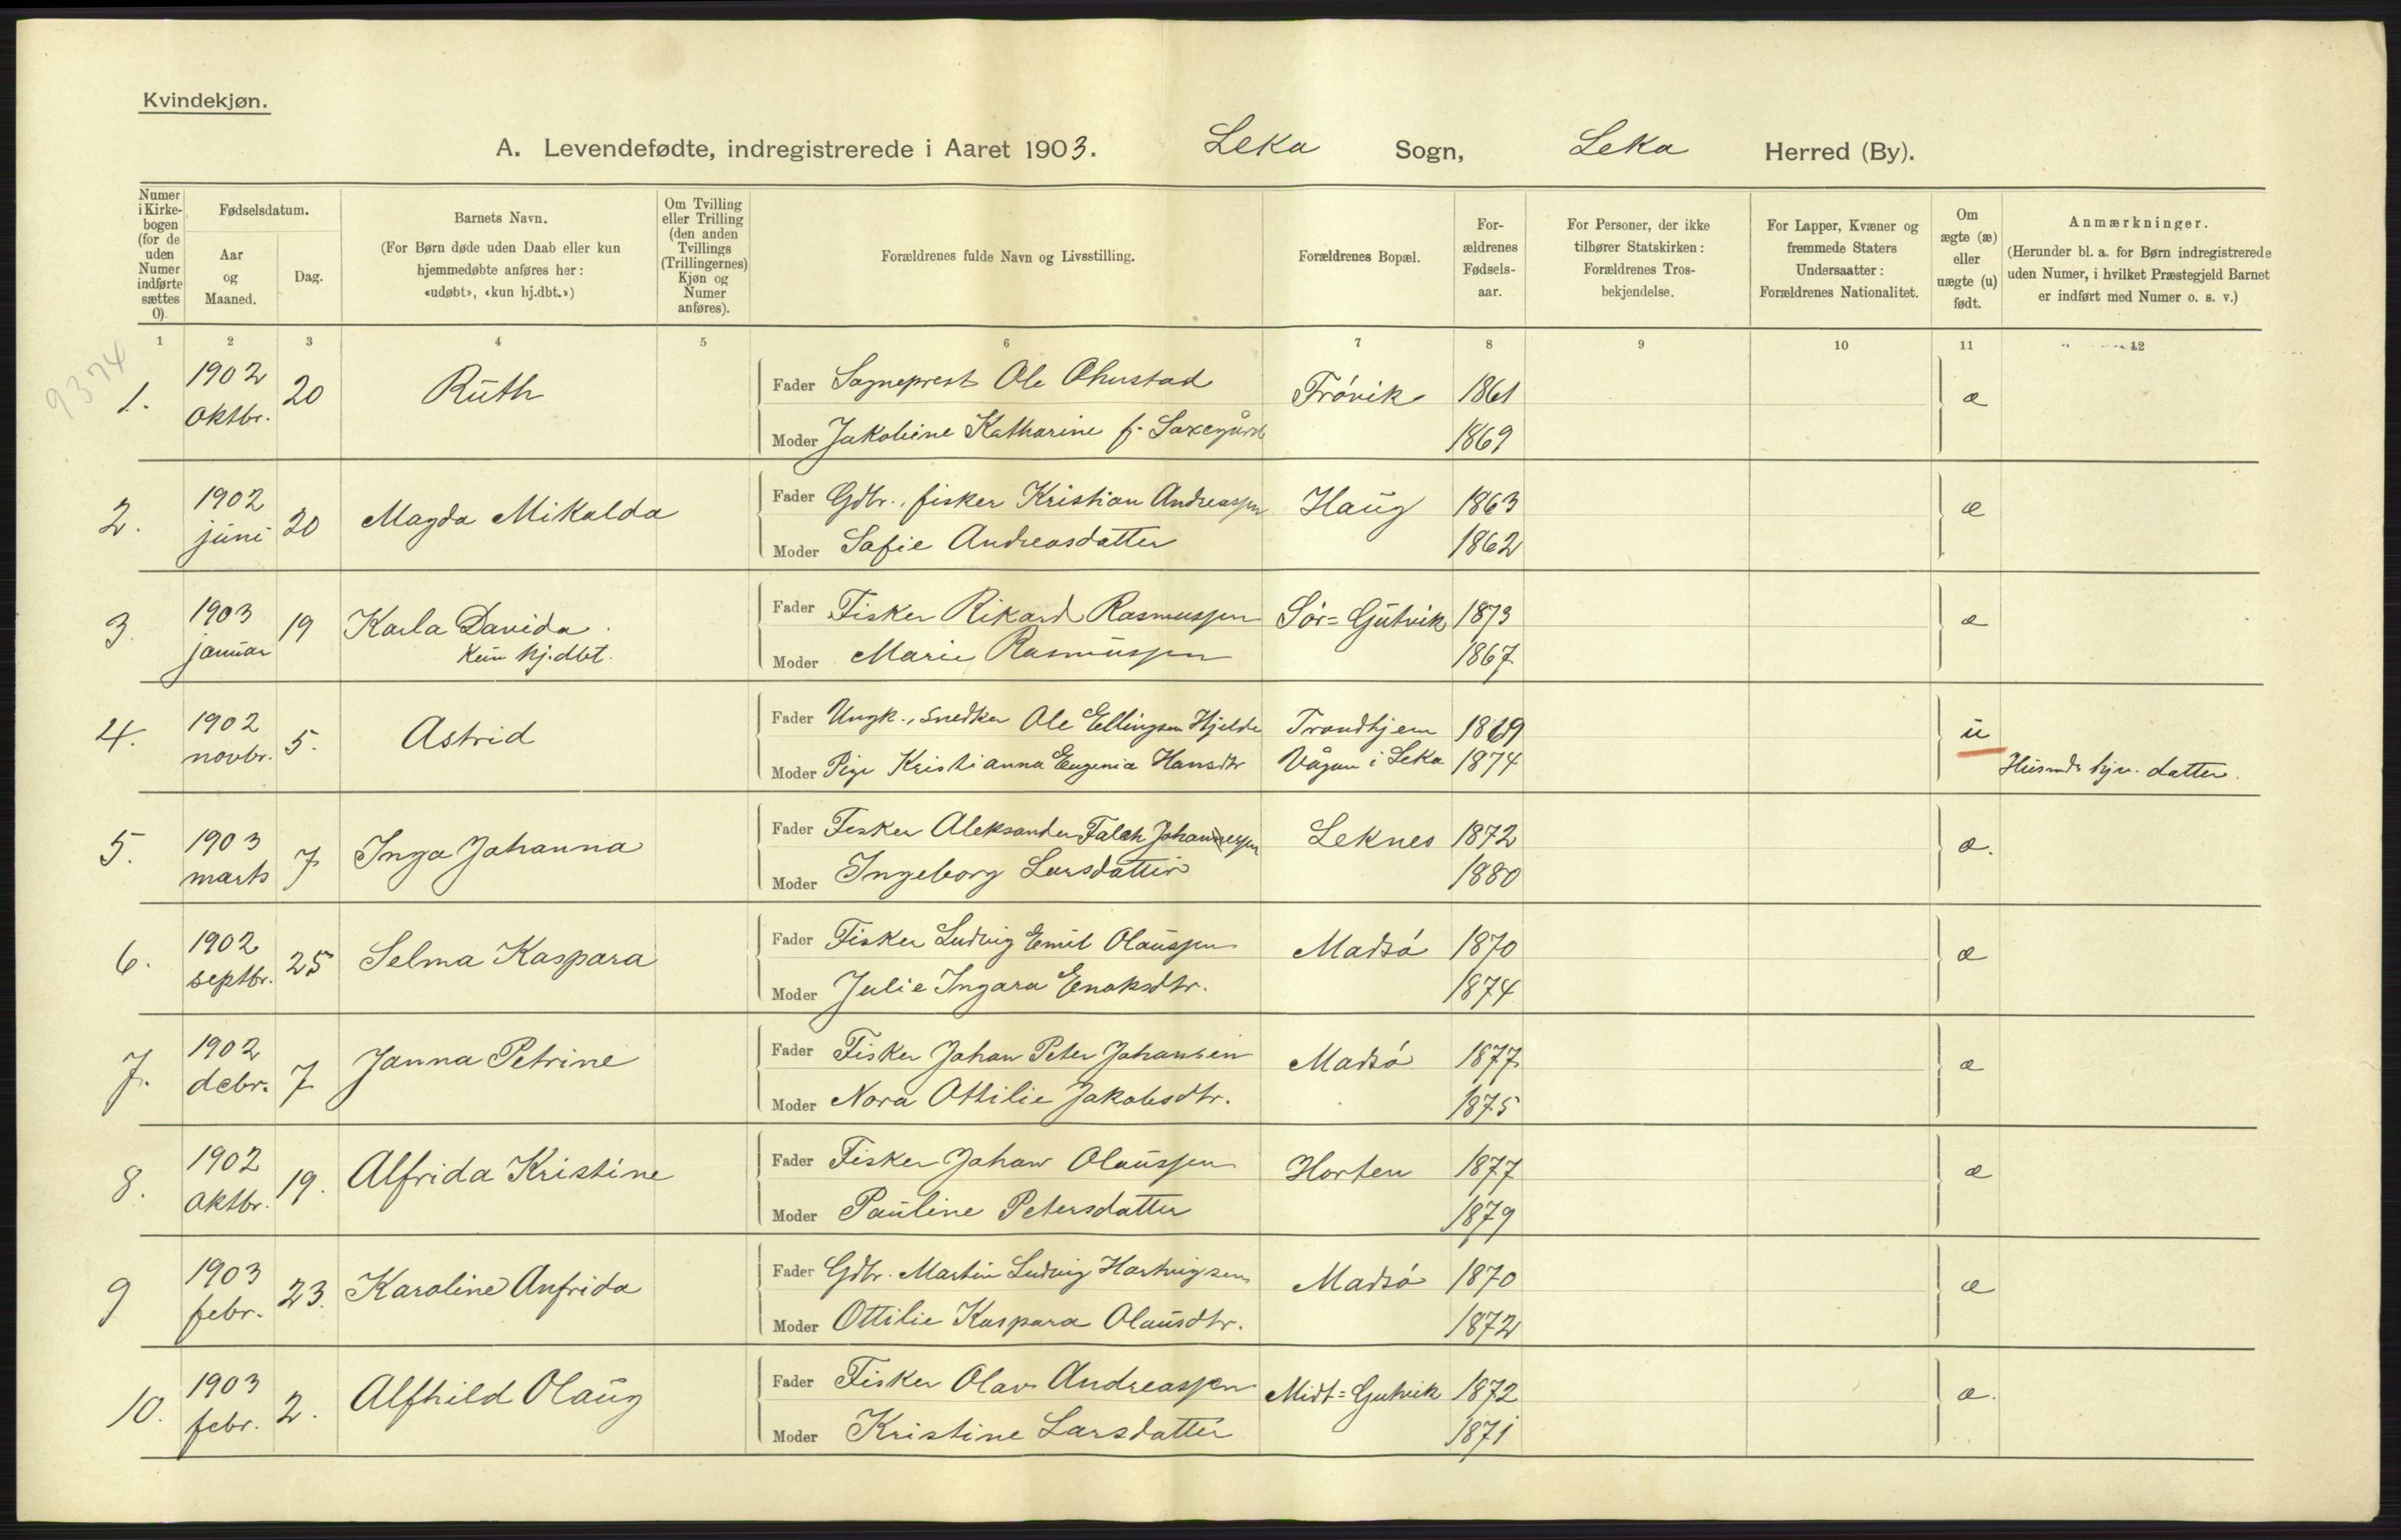 Kvindekjøn.
A. Levendefødte, indregistrerede i Aaret 1903. Leka Sogn, Leka Herred (By).
Numer i Kirke-bogen (for de uden Numer indførte sættes 0).
Fødselsdatum.
Aar og Maaned.
Dag.
Barnets Navn.
(For Børn døde uden Daab eller kun
hjemmedøbte anføres her:
«udøbt», «kun hj.dbt.»)
Om Tvilling
eller Trilling
(den anden
Tvillings
(Trillingernes)
Kjøn og
Numer
anføres).
Forældrenes fulde Navn og Livsstilling.
Forældrenes Bopæl.
For-
ældrenes
Fødsels-
aar.
For Personer, der ikke
tilhører Statskirken:
Forældrenes Tros-
bekjendelse.
For Lapper, Kvæner og
fremmede Staters
Undersaatter:
Forældrenes Nationalitet.
Om
ægte (æ)
eller
uægte (u)
født.
Anmærkninger.
(Herunder bl. a. for Børn indregistrerede
uden Numer, i hvilket Præstegjeld Barnet
er indført med Numer o. s. v.)
1 2 3 4 5 6 7 8 9 10 11 12
9374
1. 1902 oktbr. 20 Ruth
Fader Sogneprest Ole Ohustad Frövik 1861 æ
Moder Jakobine Katharine f. Saxegård 1869
2. 1902 juni 20 Magda Mikalda
Fader Gdbr., fisker Kristian Andreassen Haug 1863 æ
Moder Safie Andreasdatter 1862
3. 1903 januar 19 Karla Davida
kun hj.dbt.
Fader Fisker Rikard Rasmussen Sör=Gutvik 1873 æ
Moder Marie Rasmussen 1867
4. 1902 novbr. 5. Astrid
Fader Ungk., snedker Ole Ellingsen Hjelde Trondhjem 1869 u
Moder Pige Kristianna Eugenia Hansdtr Vågan i Leka 1874 datter.
5. 1903 marts 7 Inga Johanna
Fader Fisker Aleksander Falch Johannessen Leknes 1872 æ.
Moder Ingeborg Larsdatter 1880
6. 1902 septbr. 25 Selma Kaspara
Fader Fisker Ludvig Emil Olaussen Madsö 1870 æ
Moder Julie Ingara Enoksdtr. 1874
7. 1902 debr. 7 Janna Petrine
Fader Fisker Johan Peter Johansen Madsö 1877 æ
Moder Nora Ottilie Jakobsdtr. 1875
8. 1902 oktbr. 19. Alfrida Kristine
Fader Fisker Johan Olaussen Horten 1877 æ
Moder Pauline Petersdatter 1879
9 1903 febr. 23. Karoline Anfrida
Fader Gdbr. Martin Ludvig Hartvigsen Madsö 1870 æ
Moder Ottilie Kaspara Olausdtr. 1872
10. 1903 febr. 2. Alfhild Olaug
Fader Fisker Olav Andreassen Midt=Gutvik 1872 æ.
Moder Kristine Larsdatter 1871